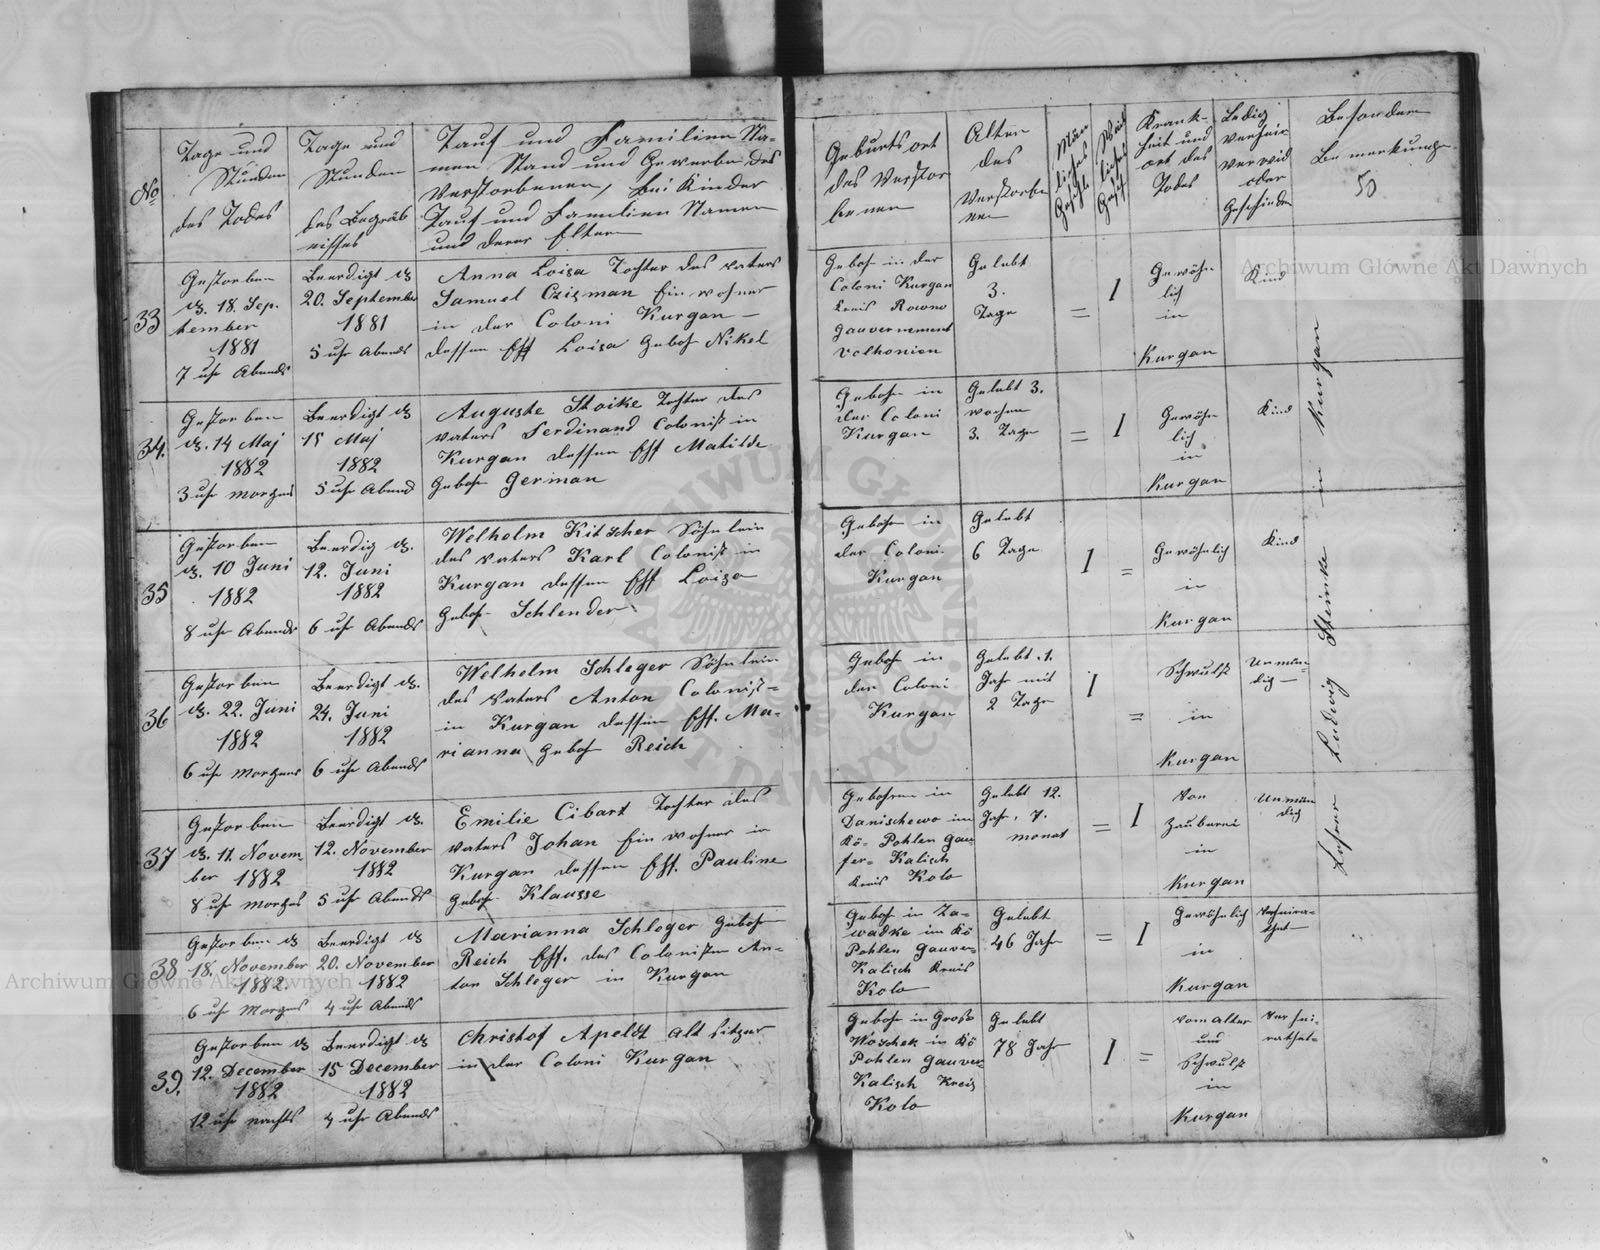 No
Tage und
Stunden
des Todes
Tage und
Stunden
des Begräb
nisses
Tauf und Familien Na-
men Stand und Gewerbe des
Verstorbenen, bei Kinder
Tauf und Familien Namen
und derer Eltern
Geburtsort
des Verstor
benen
Alter
des
Verstorbe
nen
Män
liches
Geschl
Weib
liches
Gesch
Krank-
heit und
ort des
Todes
Ledig
verheir
verwid
oder
Geschieden
Besondere
Bemerkungen
50
33
Gestorben
d. 18. Sep.
tember
1881
7 uhr Abends
Beerdigt d
20. September
1881
5 uhr Abends
Anna Loisa Tochter des Vaters
Samuel Czisman Einwohner
in der Coloni Kurgan
dessen Ehf Loisa Geboh Nikel
Geboh in der
Coloni Kurgan
Kreis Rowno
Gauvernement
Volhonien
Gelebt
3.
Tage
=
1
Gewöhn
lich
in
Kurgan
Kind
34.
Gestorben
d. 14 Maj
1882
3 uhr morgens
Beerdigt d
15 Maj
1882
5 uhr Abend
Auguste Stoike Tochter des
Vaters Ferdinand Colonist in
Kurgan dessen Ehf Matilde
Geboh German
Gebohr in
der Coloni
Kurgan
Gelebt 3.
wochen
3. Tage
=
1
Gewöhn
lich
in
Kurgan
Kind
35
Gestorben
d. 10 Juni
1882
8 uhr Abends
Beerdig d.
12. Juni
1882
6 uhr Abends
Welhelm Kitscher Söhnlein
des Vaters Karl Colonist in
Kurgan dessen Ehf Loisa
Geboh Schlender
Gebohr in
der Coloni
Kurgan
Gelebt
6 Tage
1
=
Gewöhnlich
in
Kurgan
Kind
36
Gestorben
d. 22. Juni
1882
6 uhr Morgens
Beerdigt d.
24. Juni
1882
6 uhr Abends
Welhelm Schleger Söhnlein
des Vaters Anton Colonist=
in Kurgan dessen Ehf. Ma-
rianna Geboh Reich
Geboh in
der Coloni
Kurgan
Gelebt .1.
Jahr mit
2 Tage
1
=
Schwulst
in
Kurgan
Unmün-
dig
37
Gestorben
d. 11. Novem
ber 1882
8 uhr Morgens
Beerdigt d.
12. November
1882
5 uhr Abends
Emilie Cibart Tochter des
Vaters Johan Einwohner in
Kurgan dessen Ehf. Pauline
Geboh Klausse
Gebohren in
Danischewo im
Kö- Pohlen Gau
fer- Kalisch
Kreis Kolo
Gelebt 12.
Jahr, 7.
monat
=
1
Von
Zauberei
in
Kurgan
Unmün
dig
38
Gestorben d
18. November
1882
6 uhr Morgens
Beerdigt d
20. November
1882
4 uhr Abends
Marianna Schleger Geboh
Reich Ehf. des Colonisten An-
ton Schleger in Kurgan
Geboh in Za-
wadke im Kö
Pohlen Gauver
Kalisch Kreis
Kolo
Gelebt
46 Jahr
=
1
Gewöhnlich
in
Kurgan
Verheira-
thet
39.
Gestorben d
12. December
1882
12 uhr nachts
Beerdigt d
15 December
1882
4 uhr Abends
Christof Apeldt Alt sitzer
in der Coloni Kurgan
Geboh in Groß
Woschek in Kö
Pohlen Gauver
Kalisch Kreis
Kolo
Gelebt
78 Jahr
1
=
vom Alter
und
Schwulst
in
Kurgan
Verhei-
rathet
Lehrer Ludwig Steinke in Kurgan
Archiwum Główne Akt Dawnych
Archiwum Główne Akt Dawnych
ARCHIWUM GŁÓWNE AKT DAWNYCH